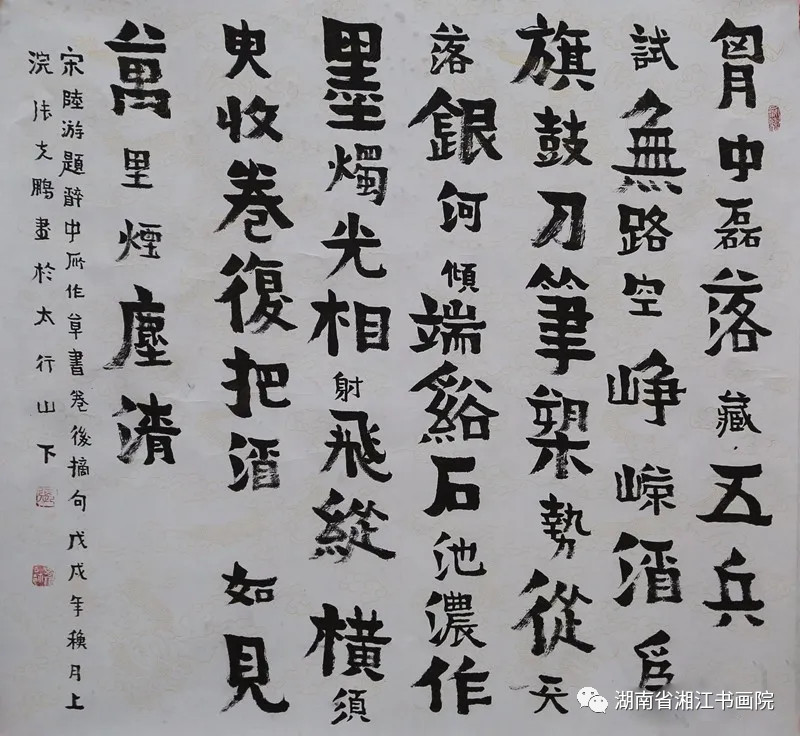 胷中磊落藏五兵
試無路空崢嶸酒爲
旗鼓刀筆槊勢從天
落銀河傾端谿石池濃作
墨燭光相射飛縱橫須
臾收卷復把酒如見
萬里煙塵清
宋陸游題醉中所作草書卷後摘句戊戌年穐月上
浣张克鵬畫於太行山下
湖南省湘江书画院